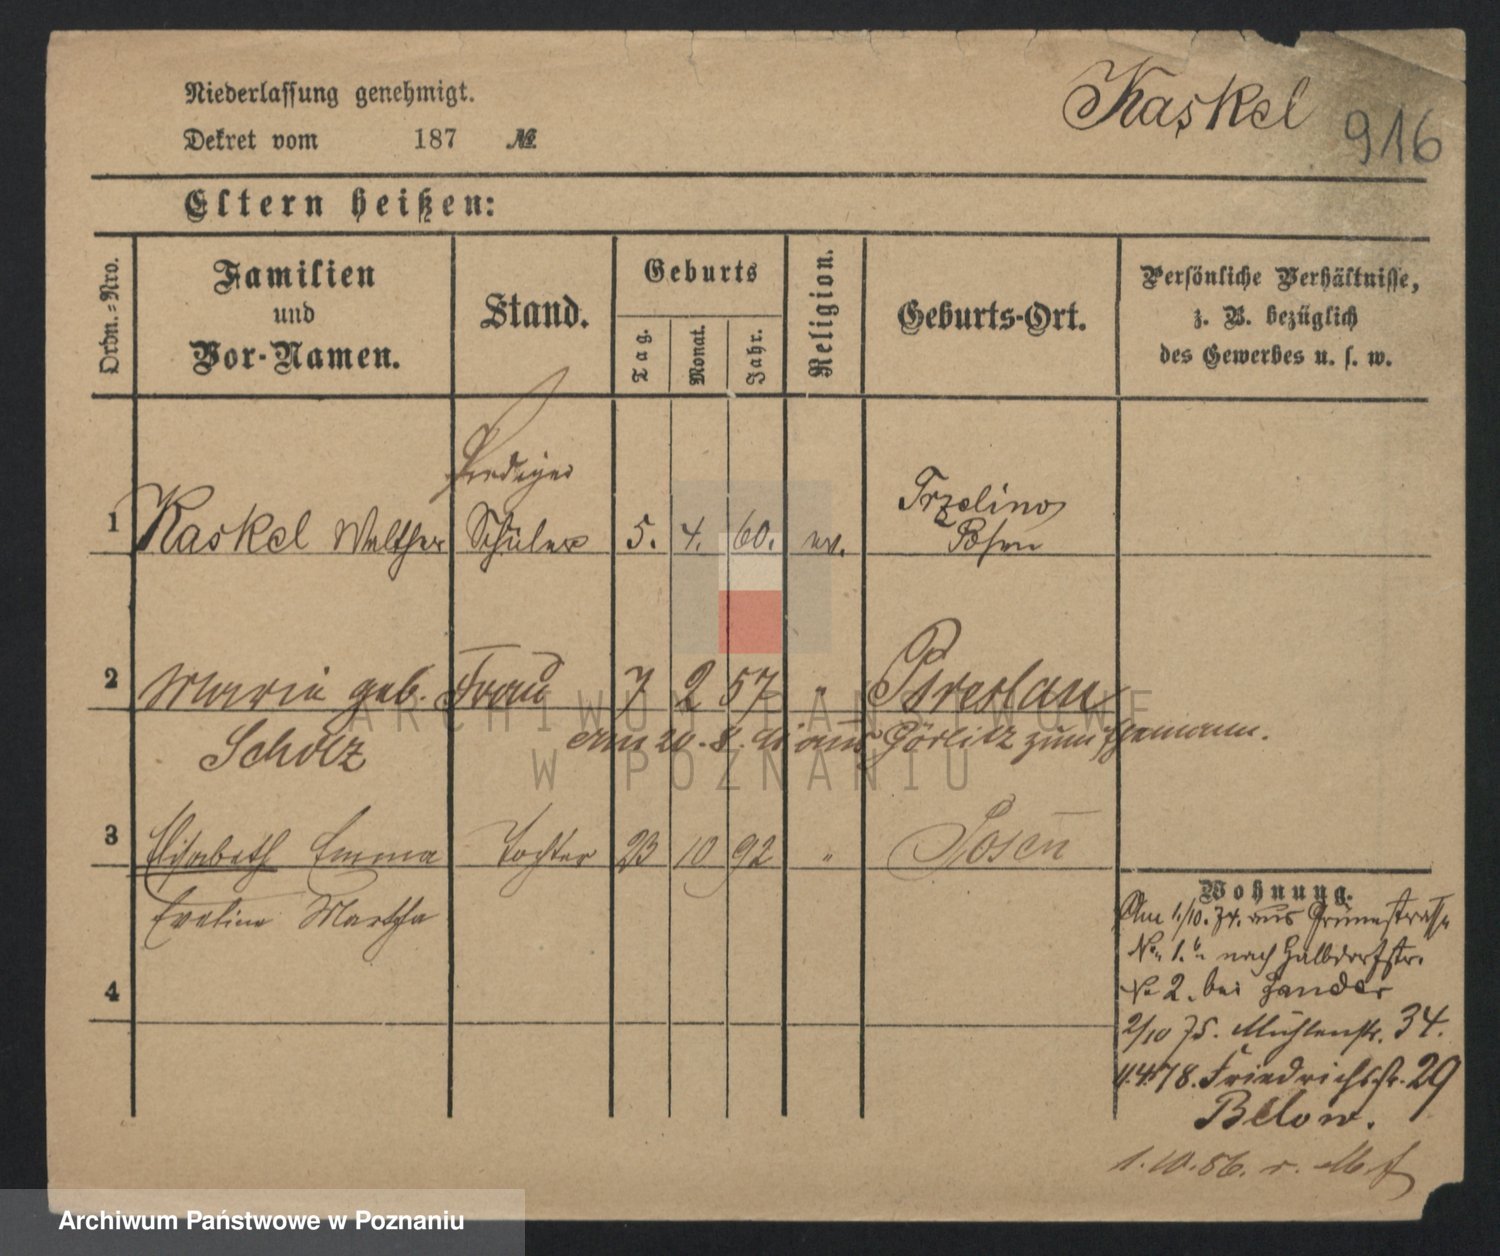 Kaskel
916
Niederlassung genehmigt.
Dekret vom 187 №
Eltern heißen:
Ordn.-Nro.
Familien
und
Vor-Namen.
Stand.
Geburts
Tag.
Monat.
Jahr.
Religion.
Geburts-Ort.
Persönliche Verhältnisse,
z. B. bezüglich
des Gewerbes u. s. w.
Prediger
1 Kaskel Walther Schüler 5. 4. 60. ev. Trzelino
Posen
2 Maria geb. Frau 7 2 57 " Breslau
Scholz
am 20. 8. 91 aus Görlitz zum Ehemann.
3 Elisabeth Emma Tochter 23 10 92 " Posen
Eveline Martha
4
Wohnung.
Am 1./10. 74. aus Grünestrasse
No 1.b. nach Halbdorfstr.
No 2. bei Zander
2/10 75. Mühlenstr. 34.
4.4.78. Friedrichstr. 29
Below.
1.10.86. r.
ARCHIWUM PAŃSTWOWE
W POZNANIU
Archiwum Państwowe w Poznaniu